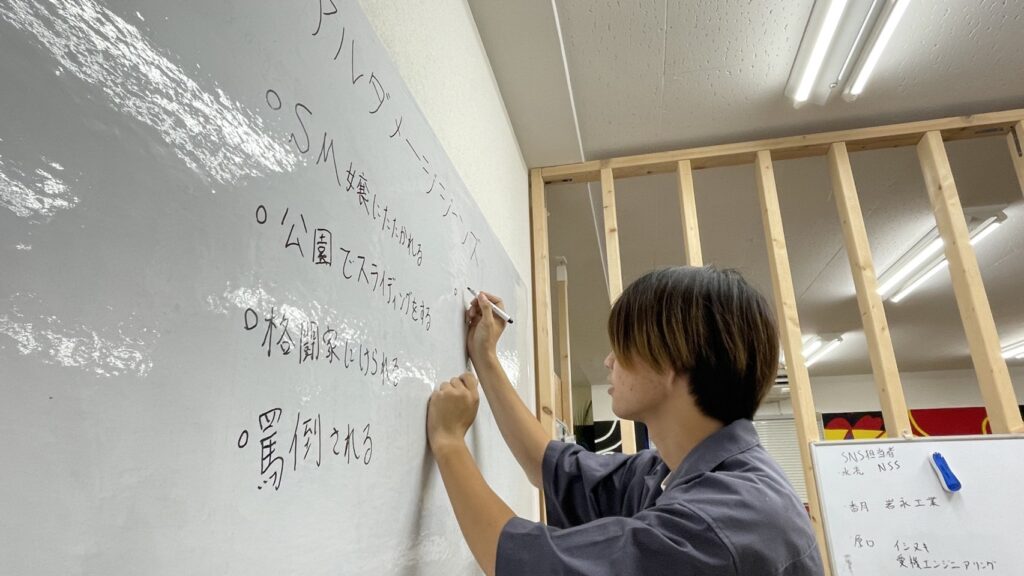 アルダメージシーンズ
○SM嬢にたたかれる
○公園でスライディングをする
○格闘家にけられる
○罵倒される
○
SNS担当者
NSS
香月 岩永工業
原口 インヌキ
愛機エンジニアリング